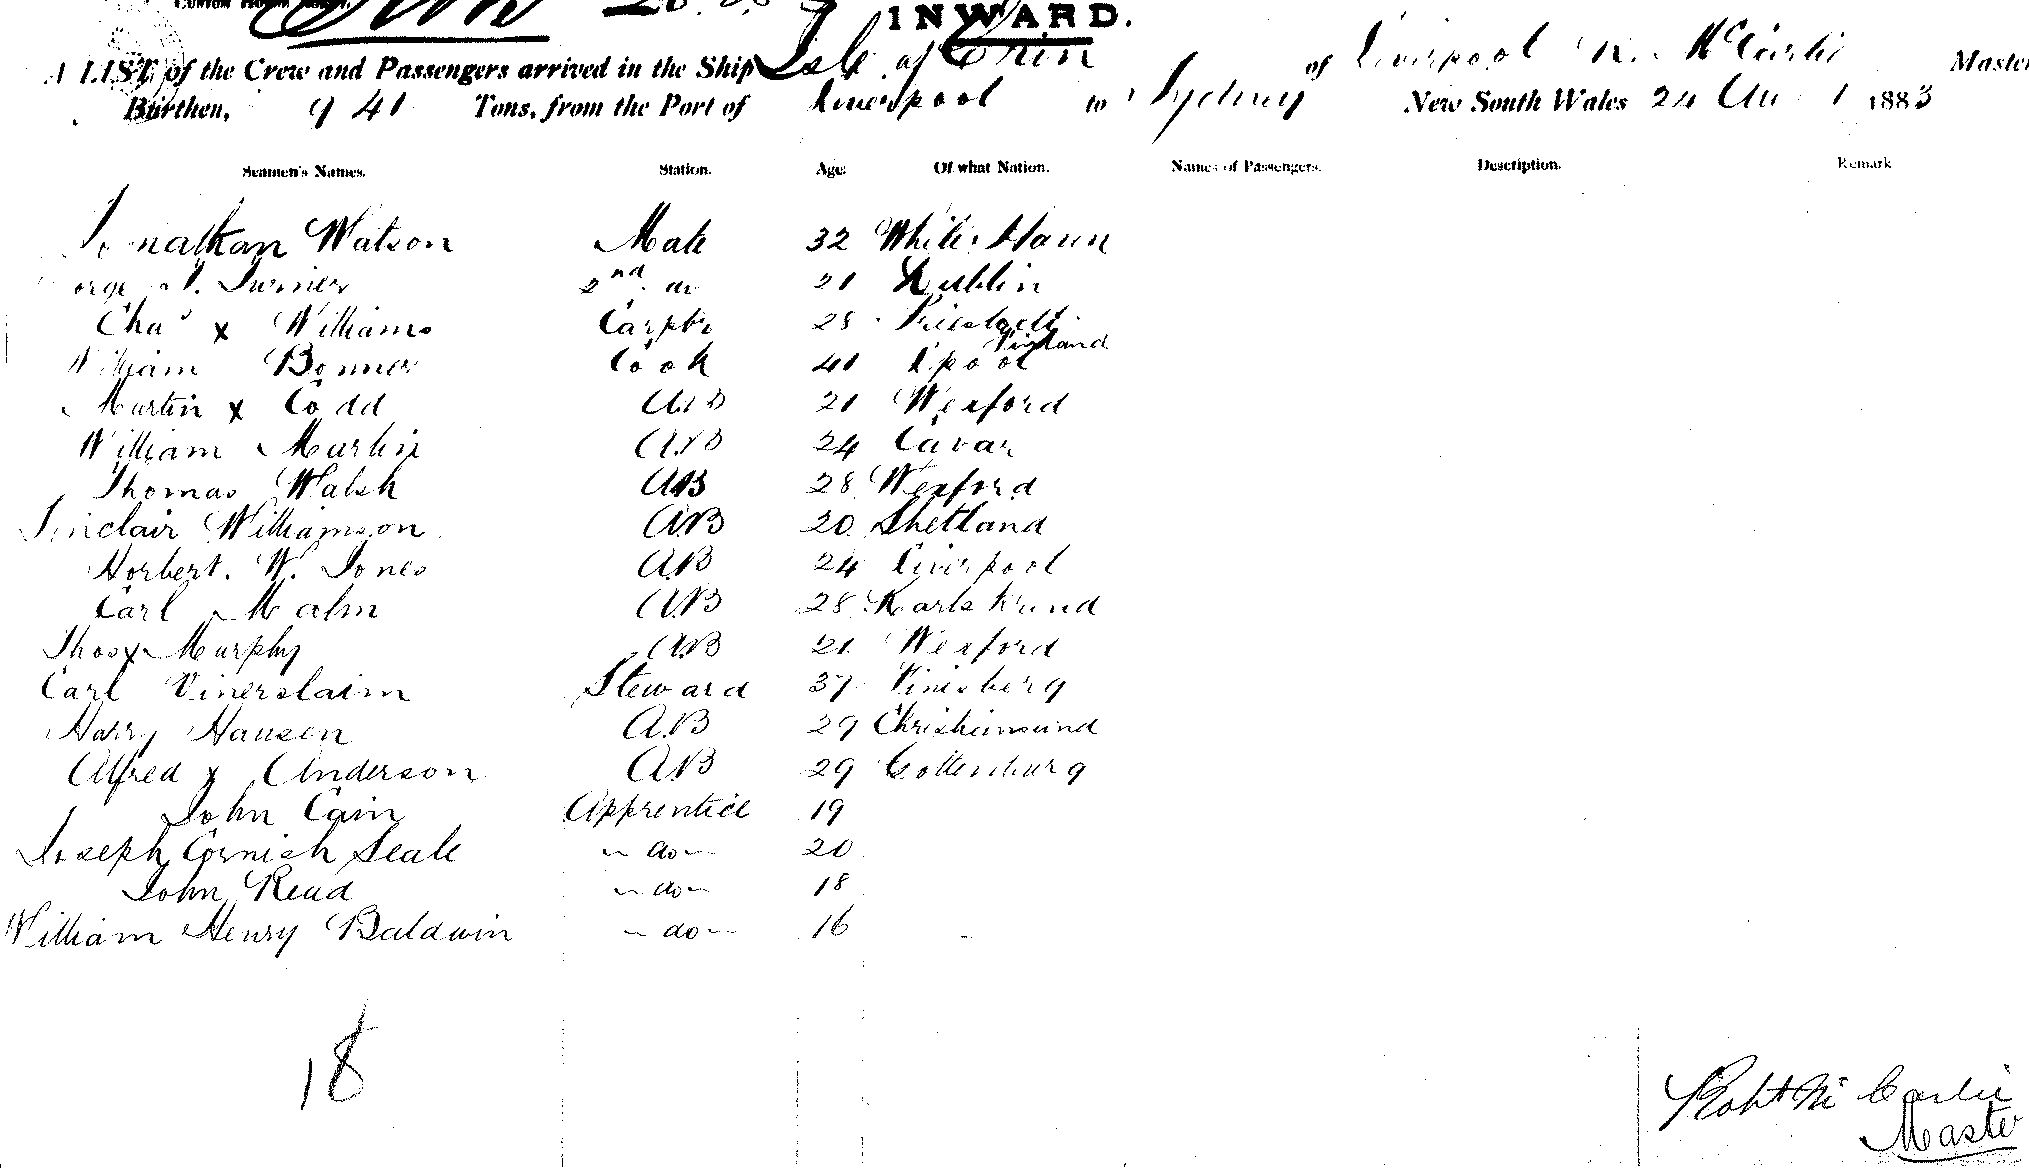 INWARD.
A LIST of the Crew and Passengers arrived in the Ship Isle of Erin of Liverpool R. McCarlie Master
Burthen, 941 Tons, from the Port of Liverpool to Sydney New South Wales 24 1883
Seamen's Names. Station. Age. Of what Nation. Names of Passengers. Description. Remark
Jonathan Watson Mate 32 White Haven
orge Turner 2nd do 21 Dublin
Chas x Williams Carptr 28
Finland
William Bonner Cook 41 L'pool
Martin x Codd A.B 21 Wexford
William Martin A.B 24 Cavan
Thomas Walsh AB 28 Wexford
Sinclair Williamson A.B 20 Shetland
Horbert. W. Jones A.B 24 Liverpool
Carl Malm A.B 28
Thos x Murphy A.B 21 Wexford
Carl Vinerslaim Steward 37 Vinisberg
Harry Hansen A.B 29 Christiansund
Alfred x Anderson A.B 29 Gottenburg
John Cain Apprentice 19
Joseph Cornish Seale - do - 20
John Read - do - 18
William Henry Baldwin - do - 16
18
Robt McCarlie
Master